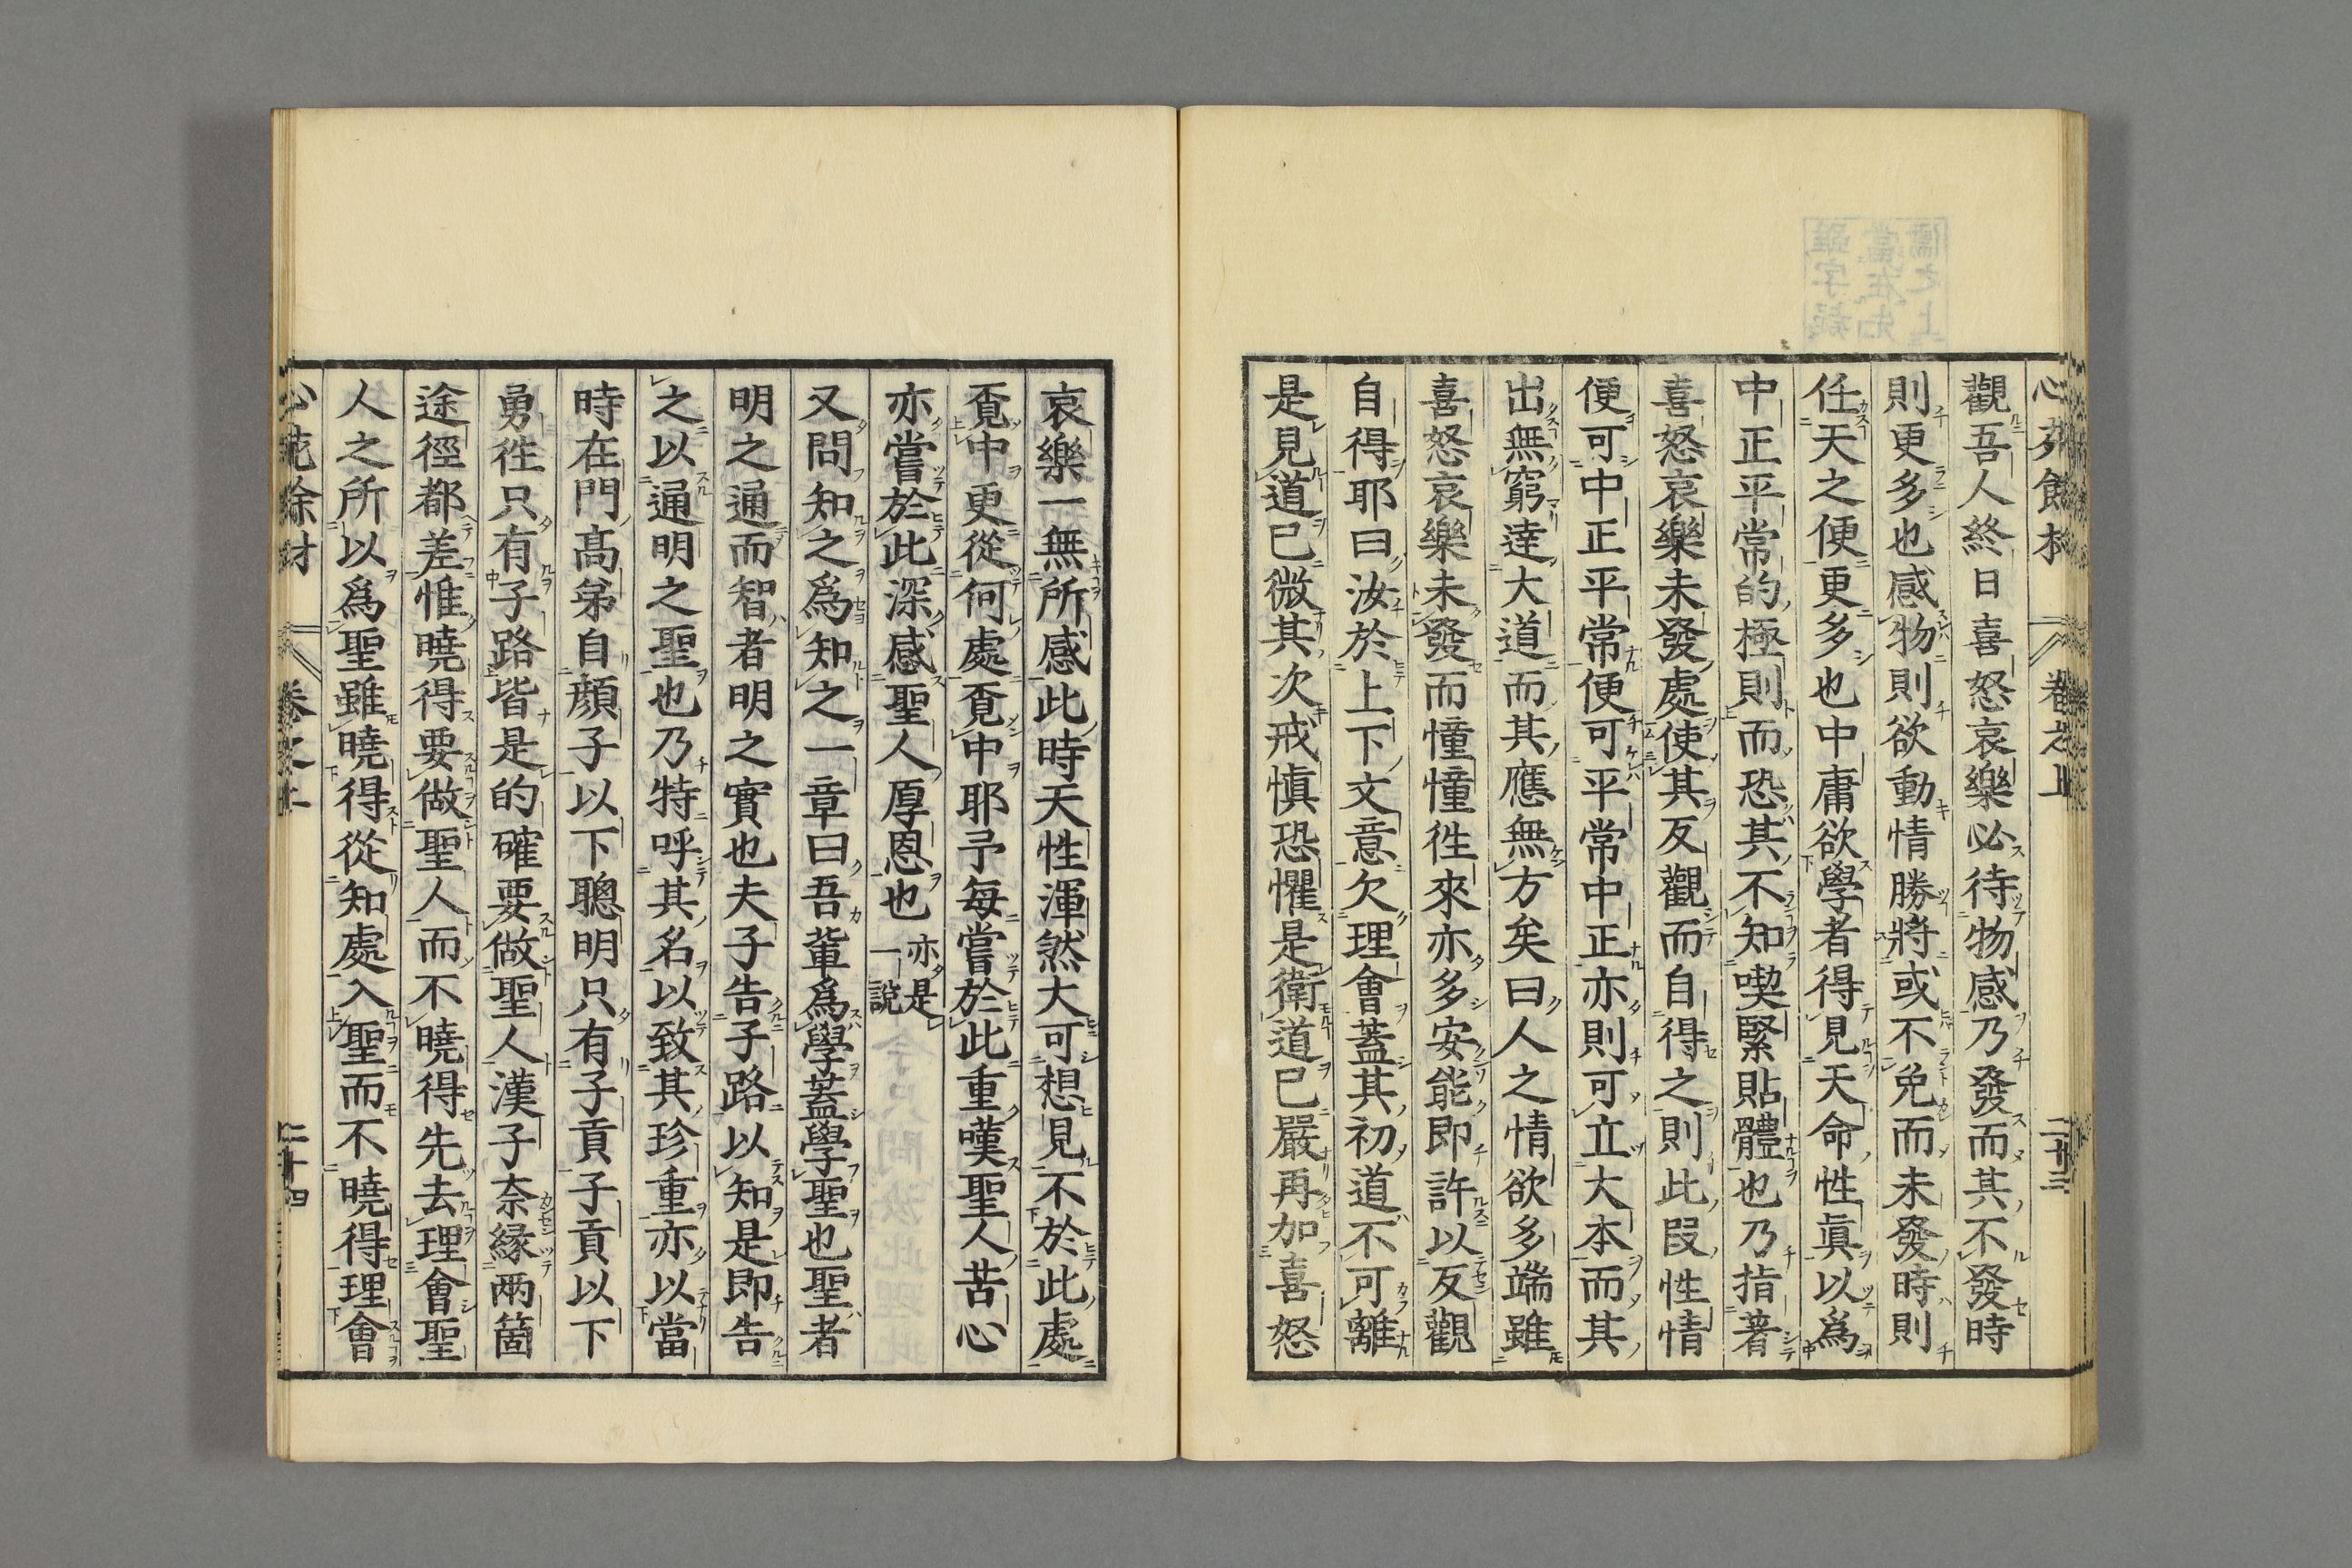 觀吾人終日喜怒哀樂必待物感乃發而其不發時
則更多也感物則欲動情勝將或不免而未發時則
任天之便更多也中庸欲學者得見天命性眞以爲
中正平常的極則而恐其不知喫緊貼體也乃指著
喜怒哀樂未發處使其反觀而自得之則此段性情
便可中正平常便可平常中正亦則可立大本而其
出無窮達大道而其應無方矣曰人之情欲多端雖
喜怒哀樂未發而憧憧徃來亦多安能即許以反觀
自得耶曰汝於上下文意欠理會蓋其初道不可離
是見道已微其次戒愼恐懼是衛道已嚴再加喜怒
哀樂一無所感此時天性渾然大可想見不於此處
覔中更從何處覔中耶予毎嘗於此重嘆聖人苦心
亦嘗於此深感聖人厚恩也亦是一說
又問知之爲知之一章曰吾輩爲學蓋學聖也聖者
明之通而智者明之實也夫子告子路以知是即告
之以通明之聖也乃特呼其名以致其珍重亦以當
時在門高弟自顏子以下聰明只有子貢子貢以下
勇徃只有子路皆是的確要做聖人漢子奈縁兩箇
途徑都差惟曉得要做聖人而不曉得先去理會聖
人之所以爲聖雖曉得從知處入聖而不曉得理會
卷之上
二十三
二十四